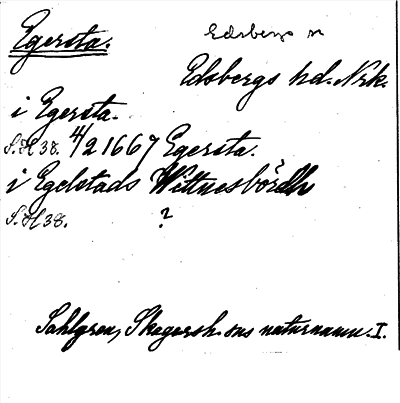 Egersta.
Edsbergs sn
Edsbergs hd. Nrk.
i Egersta.
S.H 38. 4/2 1667 Egersta.
i Egelstads Wittnesbördh
S.H 38. ?
Sahlgren, Skagersh. sns naturnamn. I.